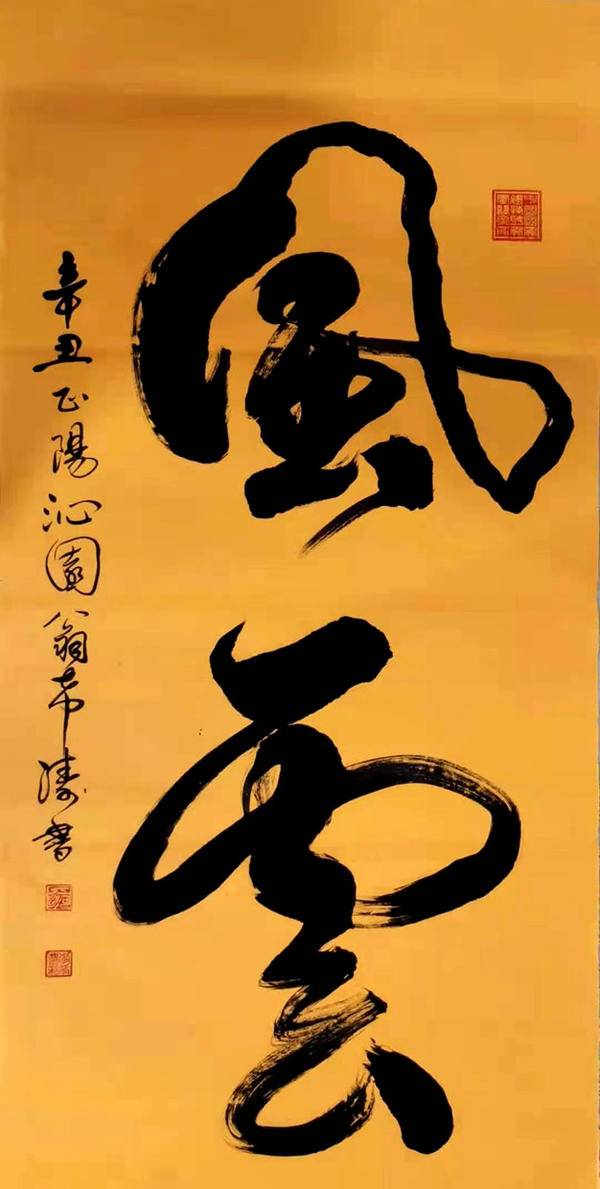 風雲
辛丑正陽沁園翁希濤書